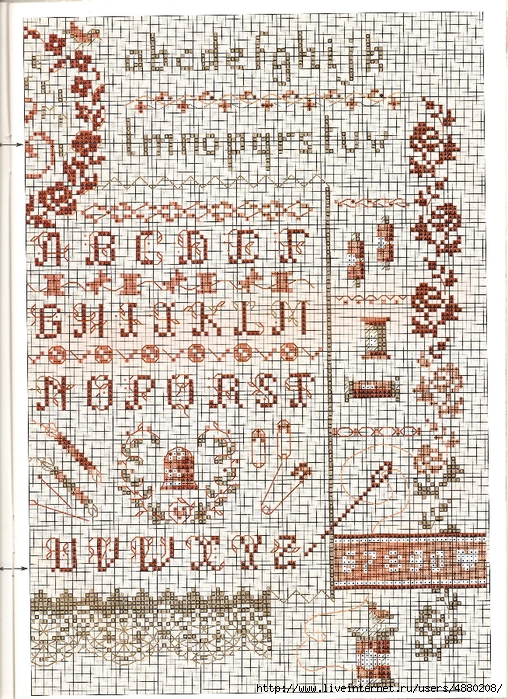 abcdefghijk
lmnopqrstuv
ABCDEF
GHIJKLM
NOPQRST
UVWXYZ
http://www.liveinternet.ru/users/4880208/